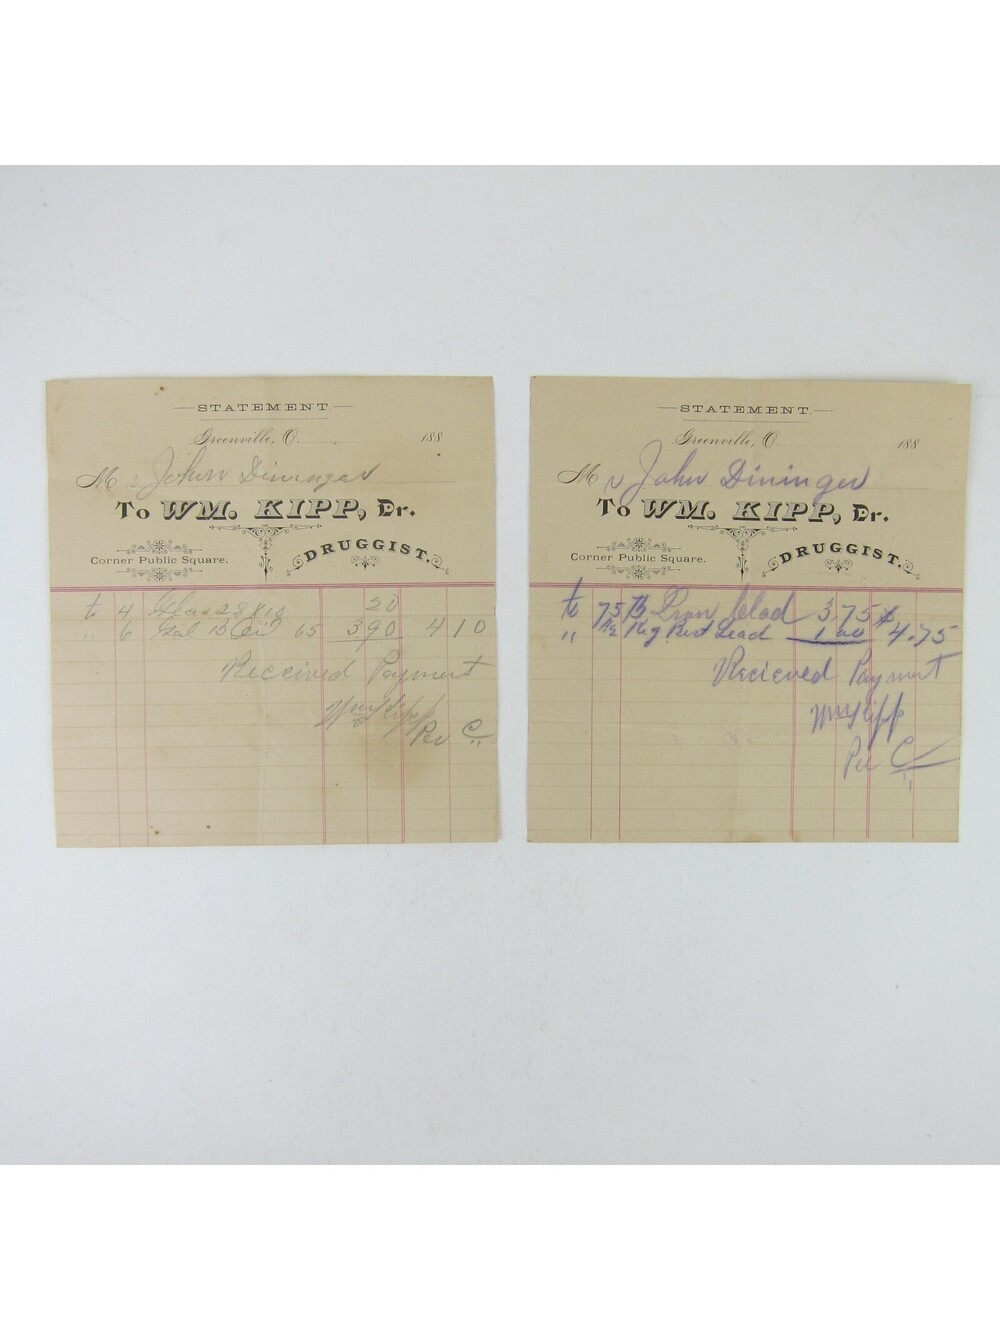 STATEMENT
Greenville, O. 188
Mr John Dininger
To WM. KIPP, Dr.
Corner Public Square.
DRUGGIST.
to 4 Glas 28 x 10 20
" 6 Gal B Oil 65 3 90 4 10
Received Payment
Wm Kipp
Per C
STATEMENT
Greenville, O. 188
Mr John Dininger
To WM. KIPP, Dr.
Corner Public Square.
DRUGGIST.
to 75 lb Iron Clad 3,75
" Keg Best Lead 1 00 $4.75
Recieved Payment
Wm Kipp
Per C